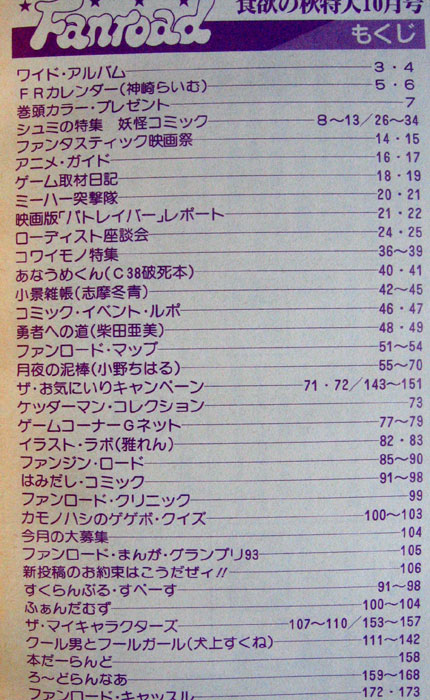 Fanroad
食欲の秋特大10月号
もくじ
ワイド・アルバム 3・4
FRカレンダー(神崎らいむ) 5・6
巻頭カラー・プレゼント 7
シュミの特集 妖怪コミック 8〜13/26〜34
ファンタスティック映画祭 14・15
アニメ・ガイド 16・17
ゲーム取材日記 18・19
ミーハー突撃隊 20・21
映画版「パトレイバー」レポート 21・22
ローディスト座談会 24・25
コワイモノ特集 36〜39
あなうめくん(C38破死本) 40・41
小景雑帳(志摩冬青) 42〜45
コミック・イベント・ルポ 46・47
勇者への道(柴田亜美) 48・49
ファンロード・マップ 51〜54
月夜の泥棒(小野ちはる) 55〜70
ザ・お気にいりキャンペーン 71・72/143〜151
ケッダーマン・コレクション 73
ゲームコーナーGネット 77〜79
イラスト・ラボ(雅れん) 82・83
ファンジン・ロード 85〜90
はみだし・コミック 91〜98
ファンロード・クリニック 99
カモノハシのゲゲボ・クイズ 100〜103
今月の大募集 104
ファンロード・まんが・グランプリ93 105
新投稿のお約束はこうだぜィ!! 106
すくらんぶる・すぺーす 91〜98
ふぁんだむず 100〜104
ザ・マイキャラクターズ 107〜110/153〜157
クール男とフールガール(犬上すくね) 111〜142
本だーらんど 158
ろ〜どらんなあ 159〜168
ファンロード・キャッスル 172・173